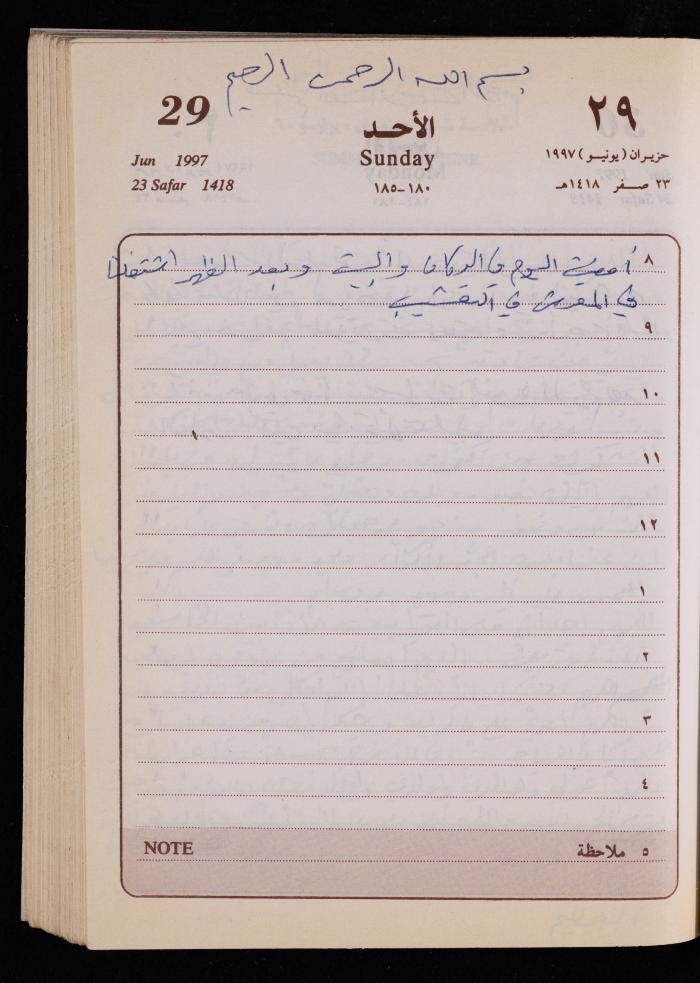 بسم الله الرحمن الرحيم
29
٢٩
الأحد
Sunday
Jun 1997
حزيران (يونيو) ١٩٩٧
23 Safar 1418
٢٣ صفر ١٤١٨هـ
١٨٠-١٨٥
٨
أمضيت اليوم في الدكان والبيت وبعد الظهر اشتغلنا
في المعرش في التقشيب
٩
١٠
١١
١٢
١
٢
٣
٤
NOTE
٥ ملاحظة